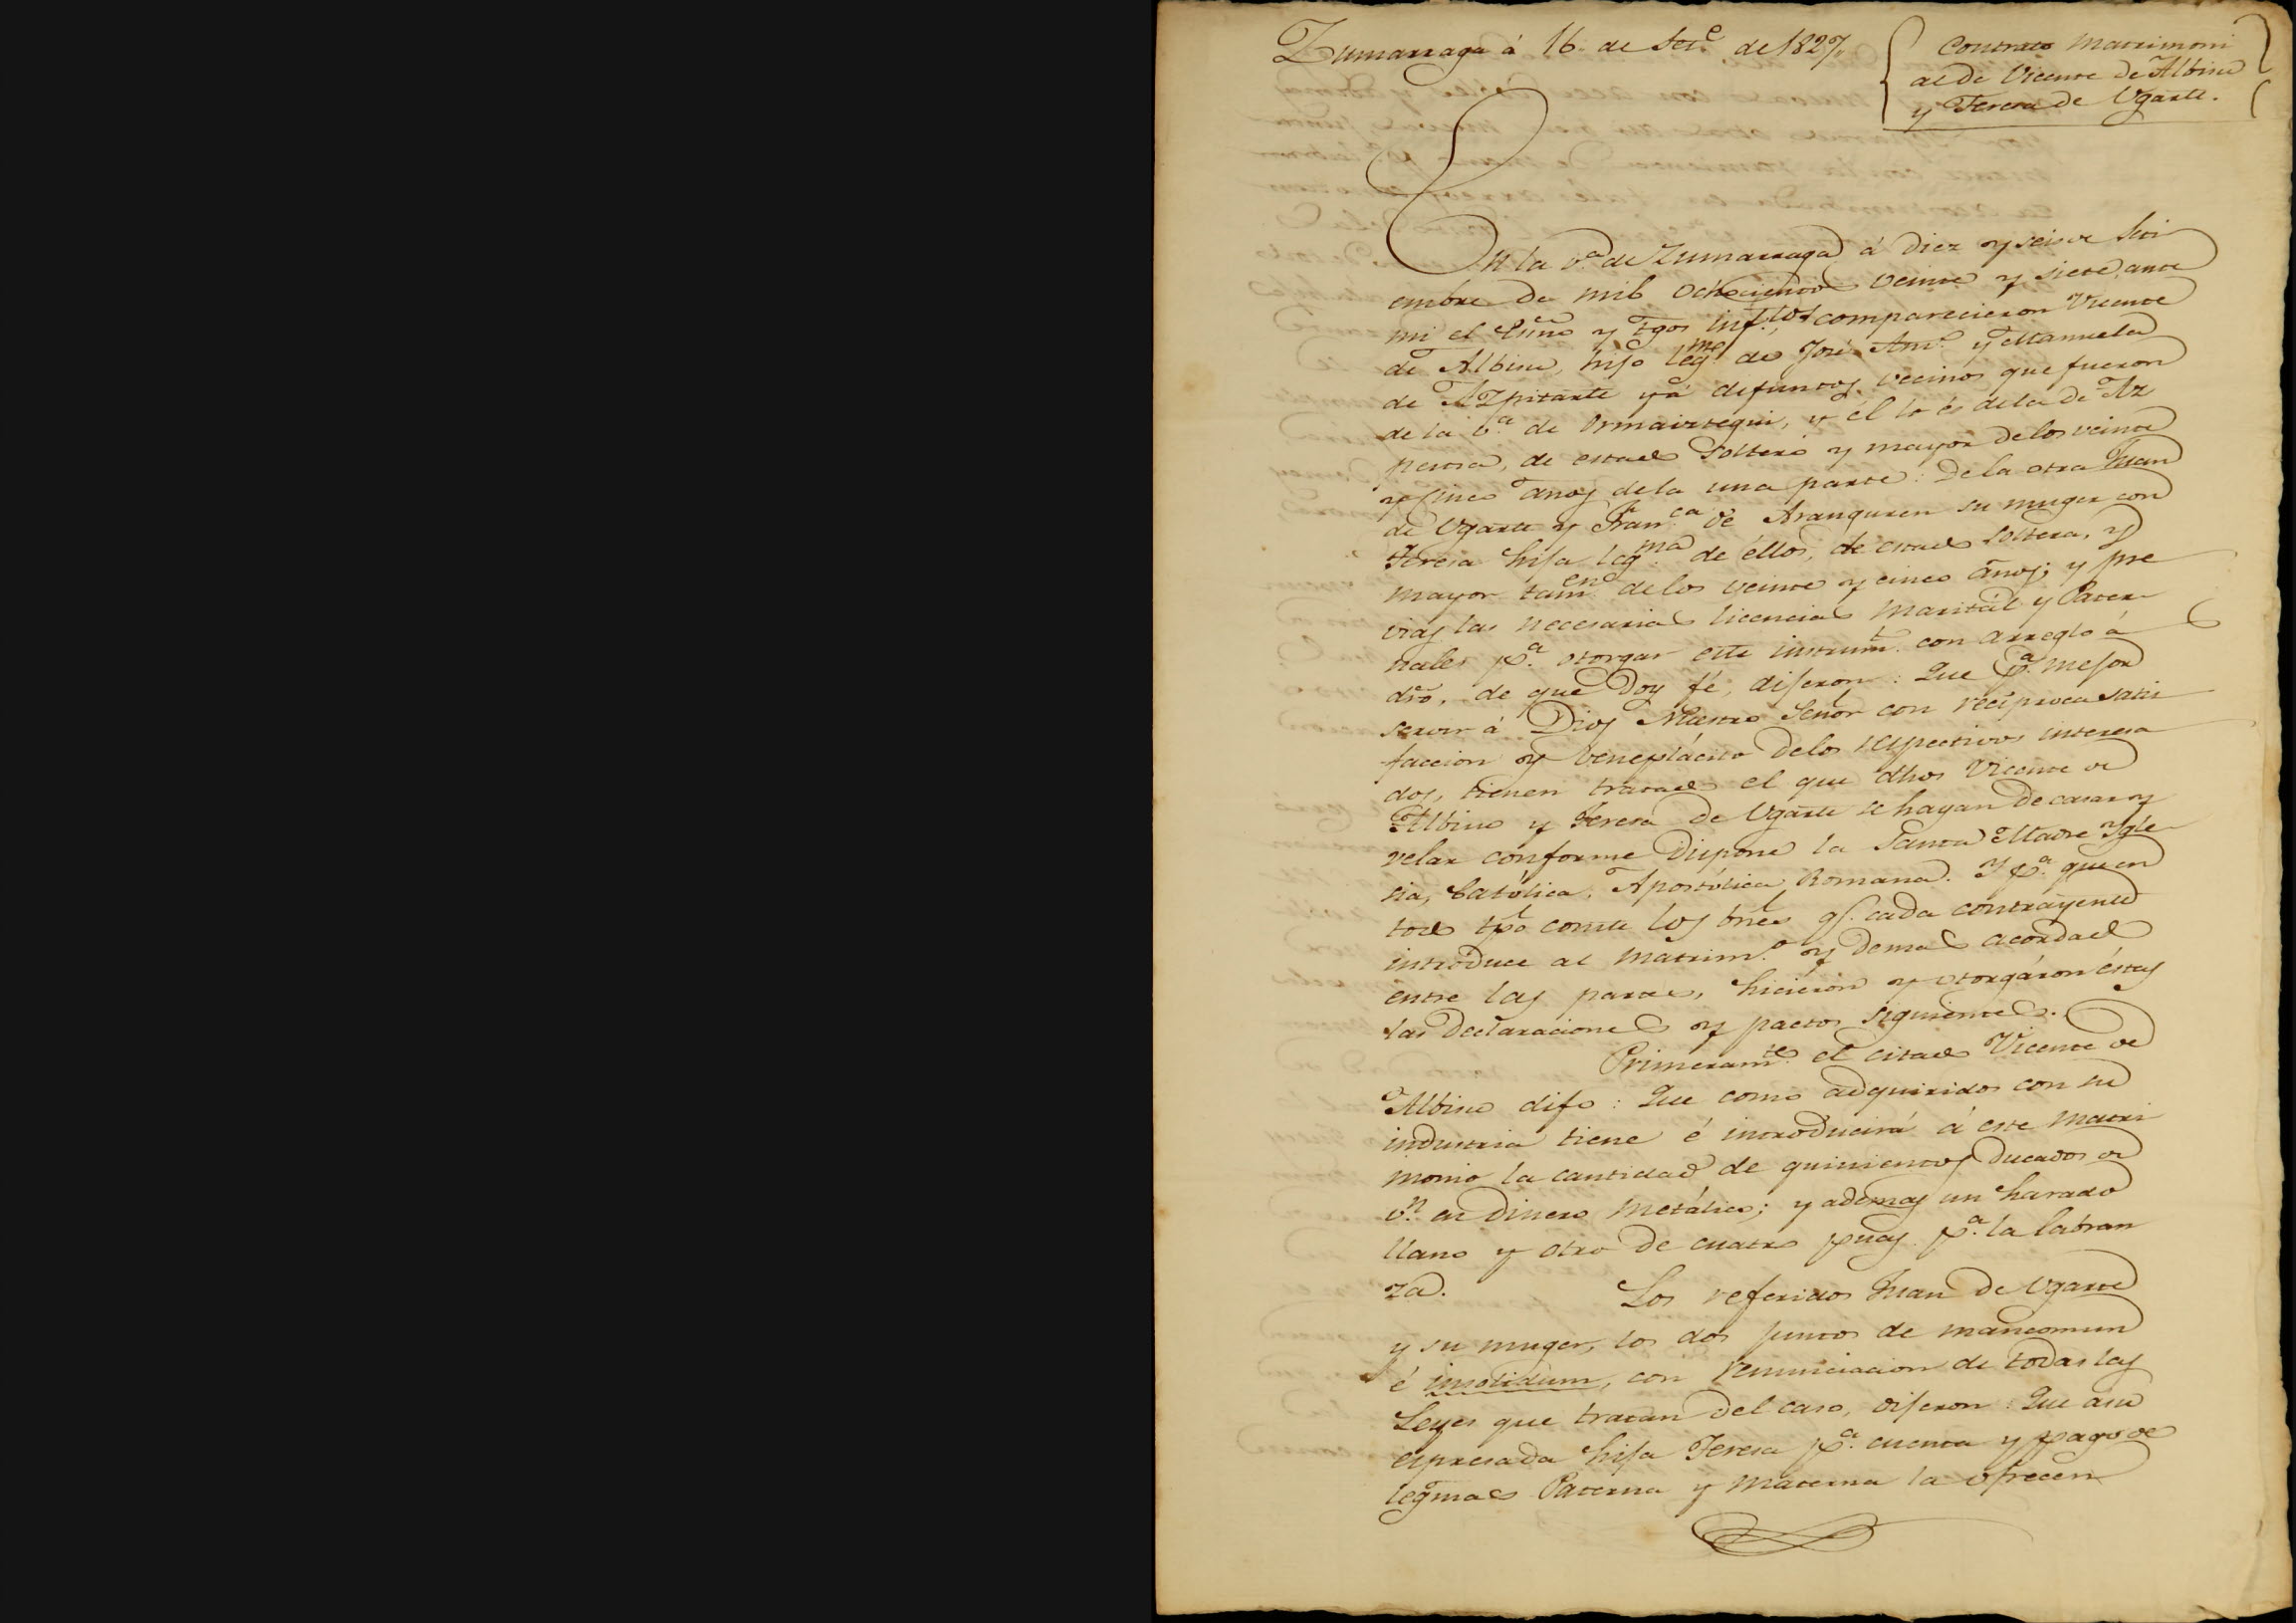 Zumarraga á 16. de Set.e de 1827.
Contrato Matrimoni
al de Vicente de Albisu
y Teresa de Ugarte.
En la v.a de Zumarraga á diez y seis de Seti
embre de mil ochocientos veinte y siete, ante
mi el Essno y tgos inf.tos comparecieron Vicente
de Albisu, hijo leg.mo de José Ant.o y Manuela
de Azpitarte yá defuntos, vecinos que fueron
de la v.a de Ormaiztegui, y él lo és dela de Az
peitia, de estado soltero y mayor delos veinte
y cinco años dela una parte: Dela otra Juan
de Ugarte y Fran.ca de Aranguren su muger con
Teresa hija leg.ma de éllos, de estado soltera, y
mayor tam.en delos veinte y cinco años; y pre
vias las necesarias licencias Maritál y Pater
nales p.a otorgar este instrum.to con arreglo á
dro, de que doy fé, dijeron: Que p.a mejor
servir á Dios Nuestro Señor con recíproca satis
faccion y beneplácito delos respectivos interesa
dos, tienen tratado el que dhos Vicente de
Albisu y Teresa de Ugarte se hayan de casar y
velar conforme dispone la Santa Madre Ygle
sia, Católica, Apostólica Romana. Y p.a que en
todo tpo conste los bnes q.e cada contrayente
introduce al matrim.o y demas acordado
entre las partes, hiciéron y otorgáron éstas
las declaraciones y pactos siguientes.
Primeram.te el citado Vicente de
Albisu dijo: Que como adquiridos con su
industria tiene é introducirá á este Matri
monio la cantidad de quinientos Ducados de
v.n en dinero metálico; y ademas un harado
llano y otro de cuatro puas p.a la labran
za. Los referidos Juan de Ugarte
y su muger, los dos juntos de mancomun
é insolidum, con renunciacion de todas las
Leyes que tratan del caso, dijeron: Que á su
espresada hija Teresa p.a cuenta y pago de
legmas Paterna y Materna la ofrecen